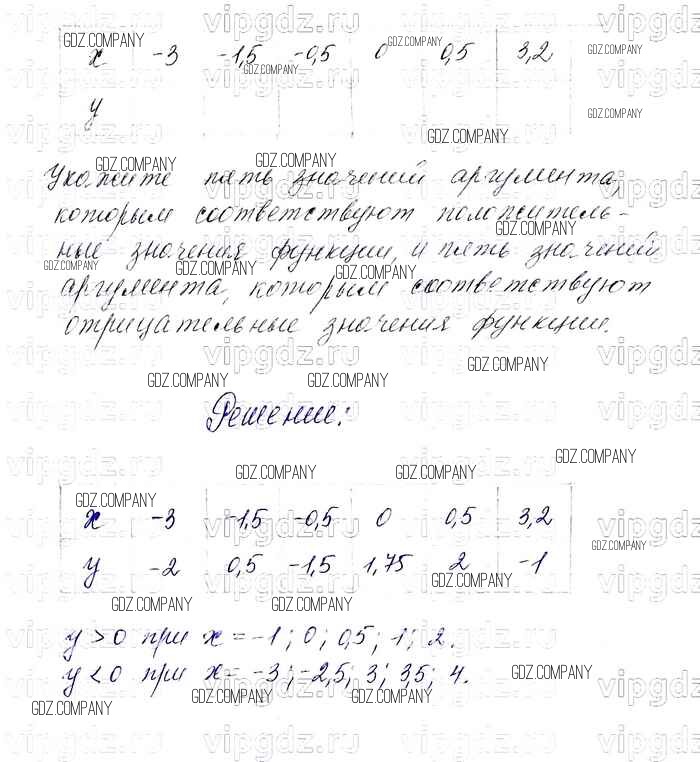 x -3 -1,5 -0,5 0 0,5 3,2
y
Укажите пять значений аргумента,
которым соответствуют положитель-
ные значения функции, и пять значений
аргумента, которым соответствуют
отрицательные значения функции.
Решение:
x -3 -1,5 -0,5 0 0,5 3,2
y -2 0,5 -1,5 1,75 2 -1
y > 0 при x = -1; 0; 0,5; 1; 2.
y < 0 при x = -3; -2,5; 3; 3,5; 4.
vipgdz.ru
GDZ.COMPANY